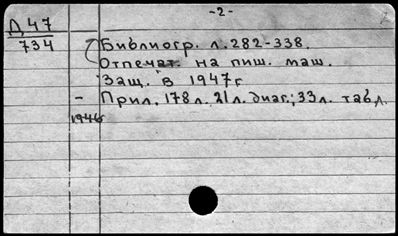 -2-
Д 47
734
Библиогр. л. 282-338.
Отпечат. на пиш. маш.
Защ. в 1947г
- Прил. 178л. 21л. диаг.; 33л. табл.
1946